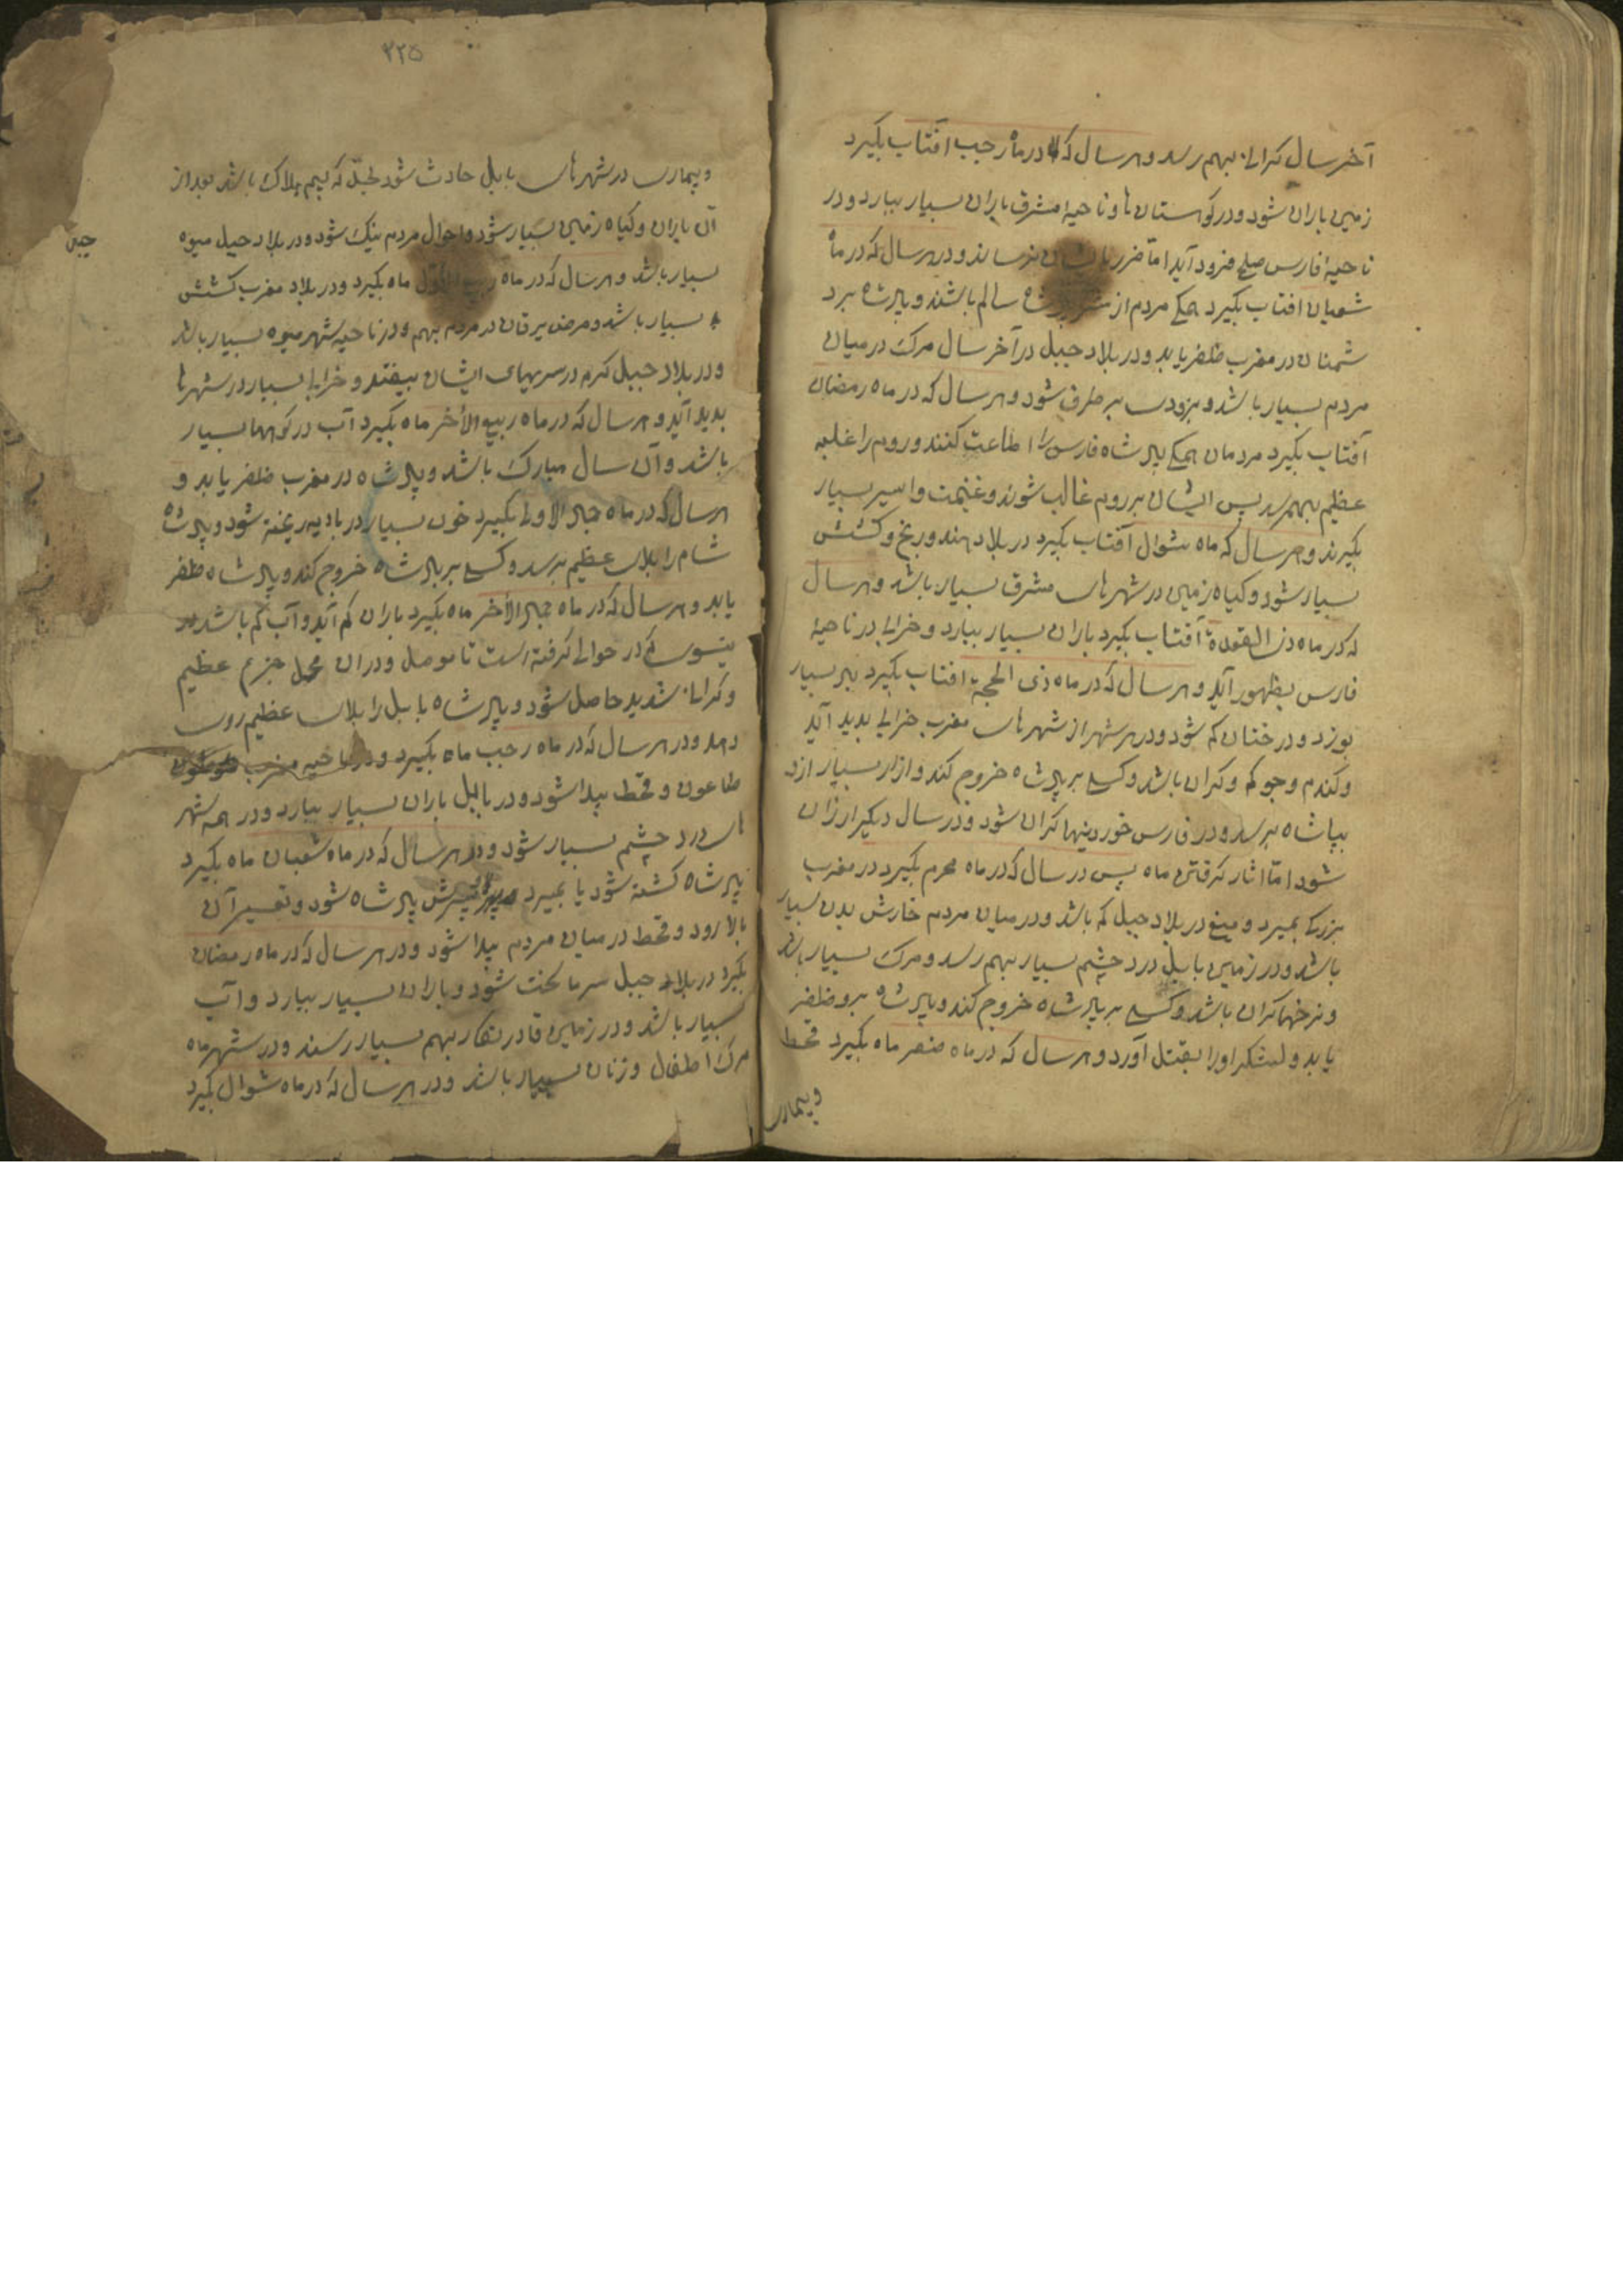 آخر سال کرانی بهم رسد و هر سال که در ماه رجب افتاب بگیرد
زمین باران شود و در کوهستان ها و ناحیهٔ مشرق باران بسیار ببارد و در
ناحیهٔ فارس ملخ فرود آید اما ضرر بایشان نرساند و در هر سال که در ماه
شعبان افتاب بگیرد همگی مردم از شر سالم باشند و پادشاه برد
شمنان در مغرب ظفر یابد و در بلاد جبل در آخر سال مرک در میان
مردم بسیار باشد و بزودی بر طرف شود و هر سال که در ماه رمضان
آفتاب بگیرد مردمان همگی پادشاه فارس را اطاعت کنند و روم را غلبه
عظیم بهمرسد پس ایشان بر روم غالب شوند و غنیمت و اسیر بسیار
بگیرند و هر سال که ماه شوال آفتاب بگیرد در بلاد هند و رنج و کشتش
بسیار شود و گیاه زمین در شهرهای مشرق بسیار باشد و هر سال
که در ماه ذی القعدة آفتاب بگیرد باران بسیار ببارد و خرابی در ناحیهٔ
فارس بظهور آید و هر سال که در ماه ذی الحجة افتاب بگیرد بسیار
بوزد و درختان کم شود و در هر شهر از شهرهای مغرب خرابی بدید آید
و کندم و جو کم و کران باشد و کسی بر پادشاه خروج کند و ازار بسیار ازد
بپاشاه برسد و در فارس خوردنیها کران شود و در سال دیکر ارزان
شود اما اثار کرفتن ماه پس در سال که در ماه محرم بگیرد در مغرب
بزرکی بمیرد و میغ در بلاد جبل کم باشد و در میان مردم خارش بدن بسیار
باشد و در زمین بابل درد چشم بسیار بهم رسد و مرک بسیار باشد
و نرخها کران باشد و کسی بر پادشاه خروج کند و پادشاه برو ظفر
یابد و لشکر اورا بقتل آورد و هر سال که در ماه صفر ماه بگیرد قحط
و بیماری
۲۲۵
و بیماری در شهرهای بابل حادث شود که بیم هلاک باشد بعد از
آن باران و گیاه زمین بسیار شود و احوال مردم نیک شود و در بلاد جبل میوه
بسیار باشد و هر سال که در ماه ربیع الاول ماه بگیرد و در بلاد مغرب کشتش
بسیار باشد و مرض یرقان در مردم بهم و در ناحیه شهر میوه بسیار باشد
و در بلاد جبل کرم در سبزیهای ایشان بیفتد و خرابی بسیار در شهرها
بدید آید و هر سال که در ماه ربیع الأخر ماه بگیرد آب در کوهها بسیار
باشد و آن سال مبارک باشد و پادشاه در مغرب ظفر یابد و
هر سال که در ماه جمادی الاولی بگیرد خون بسیار در بادیه ریخته شود و پادشاه
شام را بلای عظیم برسد و کسی بر پادشاه خروج کند و پادشاه ظفر
یابد و هر سال که در ماه جمادی الأخر ماه بگیرد باران کم آید و آب کم باشد در
که در حوالی کرفته است تا موصل و در ان محل عظیم
و کرانی شدید حاصل شود و پادشاه بابل را بلای عظیم روی
دهد و در هر سال که در ماه رجب ماه بگیرد و در ناحیه مغرب
طاعون و قحط پیدا شود و در بابل باران بسیار ببارد و در همه شهر
های درد چشم بسیار شود و در هر سال که در ماه شعبان ماه بگیرد
پادشاه کشته شود یا بمیرد پسرش پادشاه شود و تسعیر آن
بالا رود و قحط در میان مردم پیدا شود و در هر سال که در ماه رمضان
بگیرد در بلاد جبل سرما سخت شود و باران بسیار ببارد و آب
بسیار باشد و در زمین فارس بهم بسیار رسند و در شهر ماه
مرک اطفال و زنان بسیار باشد و در هر سال که در ماه شوال بگیرد